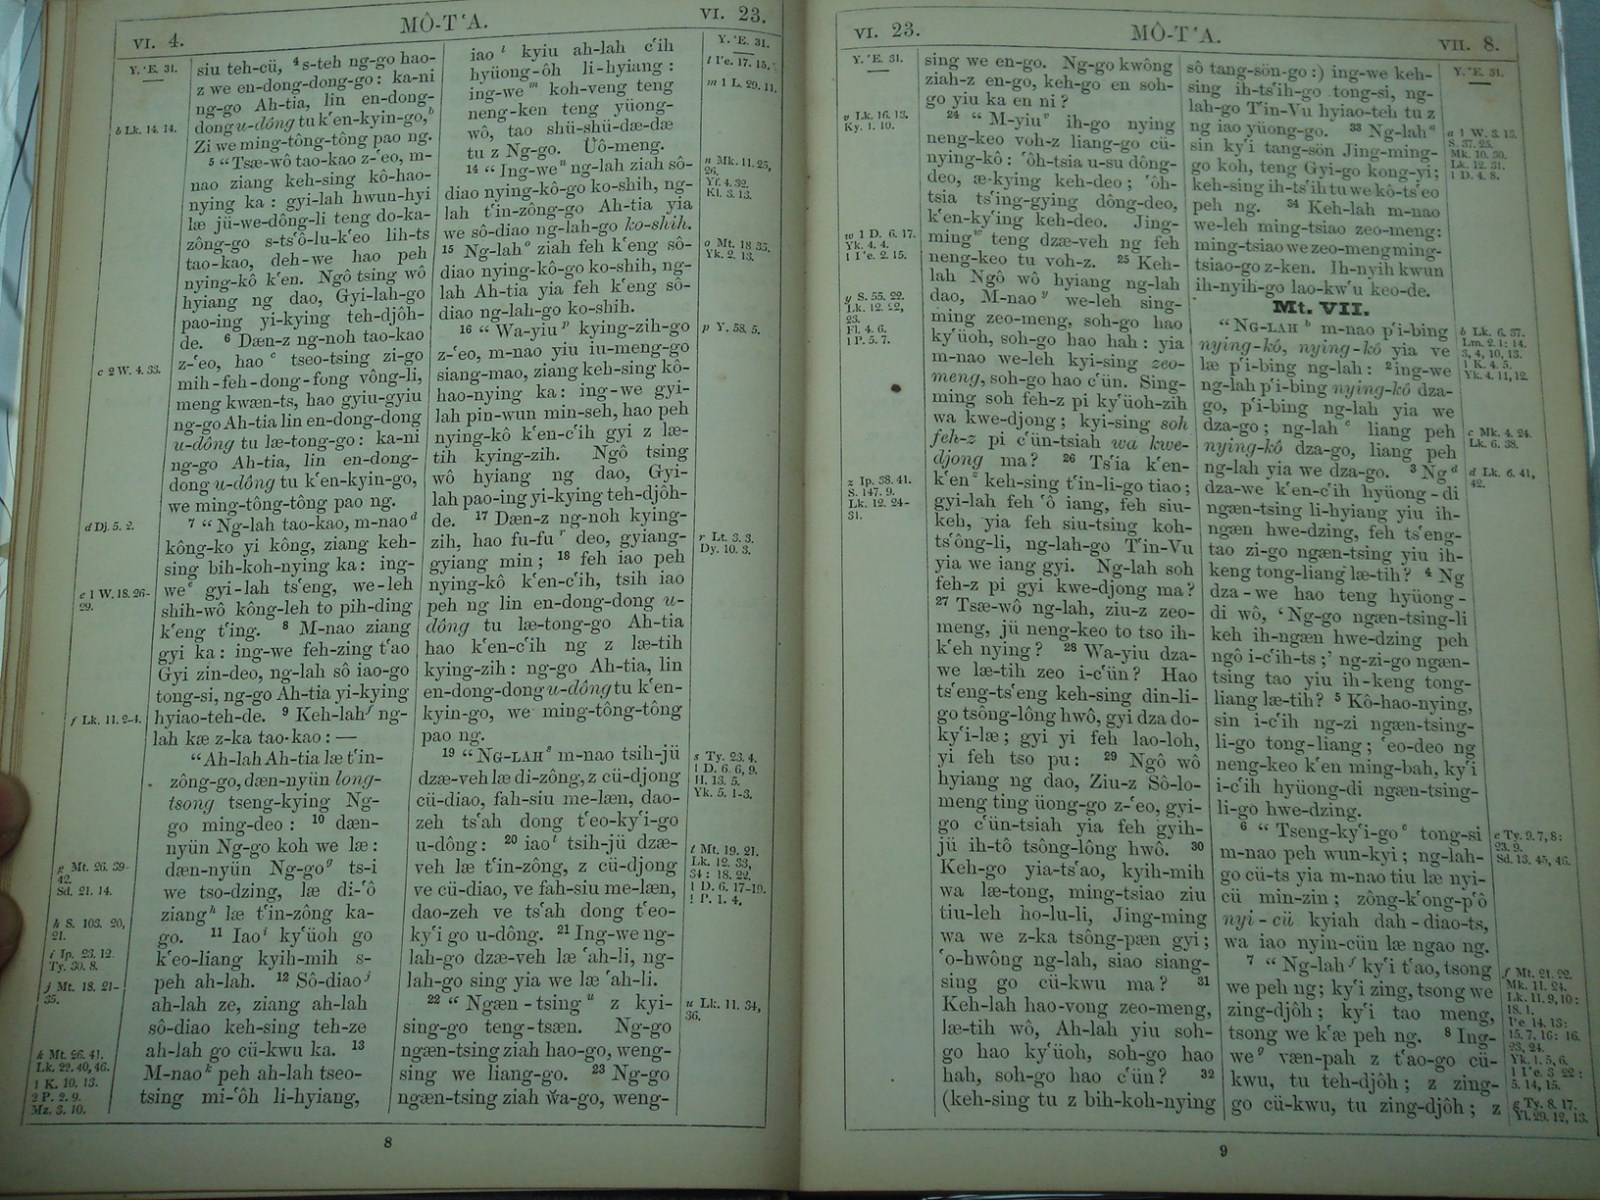 VI. 4.
MÔ-T‘A.
VI. 23.
Y. ‘E. 31.
b Lk. 14. 14.
c 2 W. 4. 33.
d Dj. 5. 2.
e 1 W. 18. 26-
29.
f Lk. 11. 2-4.
g Mt. 26. 39-
42.
Sd. 21. 14.
h S. 103. 20,
21.
i Ip. 23. 12.
Ty. 30. 8.
j Mt. 18. 21-
35.
k Mt. 26. 41.
Lk. 22. 40, 46.
1 K. 10. 13.
2 P. 2. 9.
Mz. 3. 10.
siu teh-cü, 4 s-teh ng-go hao-
z we en-dong-dong-go: ka-ni
ng-go Ah-tia, lin en-dong-
dong u-dông tu k‘en-kyin-go, b
Zi we ming-tông-tông pao ng.
5 “Tsæ-wô tao-kao z-‘eo, m-
nao ziang keh-sing kô-hao-
nying ka: gyi-lah hwun-hyi
læ jü-we-dông-li teng do-ka-
zông-go s-ts‘ô-lu-k‘eo lih-ts
tao-kao, deh-we hao peh
nying-kô k‘en. Ngô tsing wô
hyiang ng dao, Gyi-lah-go
pao-ing yi-kying teh-djôh-
de. 6 Dæn-z ng-noh tao-kao
z-‘eo, hao c tseo-tsing zi-go
mih-feh-dong-fong vông-li,
meng kwæn-ts, hao gyiu-gyiu
ng-go Ah-tia lin en-dong-dong
u-dông tu læ-tong-go: ka-ni
ng-go Ah-tia, lin en-dong-
dong u-dông tu k‘en-kyin-go,
we ming-tông-tông pao ng.
7 “Ng-lah tao-kao, m-nao d
kông-ko yi kông, ziang keh-
sing bih-koh-nying ka: ing-
we e gyi-lah ts‘eng, we-leh
shih-wô kông-leh to pih-ding
k‘eng t‘ing. 8 M-nao ziang
gyi ka: ing-we feh-zing t‘ao
Gyi zin-deo, ng-lah sô iao-go
tong-si, ng-go Ah-tia yi-kying
hyiao-teh-de. 9 Keh-lah f ng-
lah kæ z-ka tao-kao: —
“Ah-lah Ah-tia læ t‘in-
zông-go, dæn-nyün long-
tsong tseng-kying Ng-
go ming-deo: 10 dæn-
nyün Ng-go koh we læ:
dæn-nyün Ng-go g ts-i
we tso-dzing, læ di-‘ô
ziang h læ t‘in-zông ka-
go. 11 Iao i ky‘üoh go
k‘eo-liang kyih-mih s-
peh ah-lah. 12 Sô-diao j
ah-lah ze, ziang ah-lah
sô-diao keh-sing teh-ze
ah-lah go cü-kwu ka. 13
M-nao k peh ah-lah tseo-
tsing mi-‘ôh li-hyiang,
iao l kyiu ah-lah c‘ih
hyüong-ôh li-hyiang:
ing-we m koh-veng teng
neng-ken teng yüong-
wô, tao shü-shü-dæ-dæ
tu z Ng-go. Üô-meng.
14 “Ing-we n ng-lah ziah sô-
diao nying-kô-go ko-shih, ng-
lah t‘in-zông-go Ah-tia yia
we sô-diao ng-lah-go ko-shih.
15 Ng-lah o ziah feh k‘eng sô-
diao nying-kô-go ko-shih, ng-
lah Ah-tia yia feh k‘eng sô-
diao ng-lah-go ko-shih.
16 “Wa-yiu p kying-zih-go
z-‘eo, m-nao yiu iu-meng-go
siang-mao, ziang keh-sing kô-
hao-nying ka: ing-we gyi-
lah pin-wun min-seh, hao peh
nying-kô k‘en-c‘ih gyi z læ-
tih kying-zih. Ngô tsing
wô hyiang ng dao, Gyi-
lah pao-ing yi-kying teh-djôh-
de. 17 Dæn-z ng-noh kying-
zih, hao fu-fu r deo, gyiang-
gyiang min; 18 feh iao peh
nying-kô k‘en-c‘ih, tsih iao
peh ng lin en-dong-dong u-
dông tu læ-tong-go Ah-tia
hao k‘en-c‘ih ng z læ-tih
kying-zih: ng-go Ah-tia, lin
en-dong-dong u-dông tu k‘en-
kyin-go, we ming-tông-tông
pao ng.
19 “NG-LAH s m-nao tsih-jü
dzæ-veh læ di-zông, z cü-djong
cü-diao, fah-siu me-læn, dao-
zeh ts‘ah dong t‘eo-ky‘i-go
u-dông: 20 iao t tsih-jü dzæ-
veh læ t‘in-zông, z cü-djong
ve cü-diao, ve fah-siu me-læn,
dao-zeh ve ts‘ah dong t‘eo-
ky‘i go u-dông. 21 Ing-we ng-
lah-go dzæ-veh læ ‘ah-li, ng-
lah-go sing yia we læ ‘ah-li.
22 “Ngæn-tsing u z kyi-
sing-go teng-tsæn. Ng-go
ngæn-tsing ziah hao-go, weng-
sing we liang-go. 23 Ng-go
ngæn-tsing ziah wa-go, weng-
Y. ‘E. 31.
l I‘e. 17. 15.
m 1 L. 29. 11.
n Mk. 11. 25,
26.
Yf. 4. 32.
Kl. 3. 13.
o Mt. 18. 35.
Yk. 2. 13.
p Y. 58. 5.
r Lt. 3. 3.
Dy. 10. 3.
s Ty. 23. 4.
1 D. 6. 6, 9.
H. 13. 5.
Yk. 5. 1-3.
t Mt. 19. 21.
Lk. 12. 33,
34: 18. 22.
1 D. 6. 17-19.
1 P. 1. 4.
u Lk. 11. 34,
36.
8
VI. 23.
MÔ-T‘A.
VII. 8.
Y. ‘E. 31.
v Lk. 16. 13.
Ky. 1. 10.
w 1 D. 6. 17.
Yk. 4. 4.
1 I‘e. 2. 15.
y S. 55. 22.
Lk. 12. 22,
23.
Fl. 4. 6.
1 P. 5. 7.
z Ip. 38. 41.
S. 147. 9.
Lk. 12. 24-
31.
sing we en-go. Ng-go kwông
ziah-z en-go, keh-go en soh-
go yiu ka en ni?
24 “M-yiu v ih-go nying
neng-keo voh-z liang-go cü-
nying-kô: ‘ôh-tsia u-su dông-
deo, æ-kying keh-deo; ‘ôh-
tsia ts‘ing-gying dông-deo,
k‘en-ky‘ing keh-deo. Jing-
ming w teng dzæ-veh ng feh
neng-keo tu voh-z. 25 Keh-
lah Ngô wô hyiang ng-lah
dao, M-nao y we-leh sing-
ming zeo-meng, soh-go hao
ky‘üoh, soh-go hao hah: yia
m-nao we-leh kyi-sing zeo-
meng, soh-go hao c‘ün. Sing-
ming soh feh-z pi ky‘üoh-zih
wa kwe-djong; kyi-sing soh
feh-z pi c‘ün-tsiah wa kwe-
djong ma? 26 Ts‘ia k‘en-
k‘en z keh-sing t‘in-li-go tiao;
gyi-lah feh ‘ô iang, feh siu-
keh, yia feh siu-tsing koh-
ts‘ông-li, ng-lah-go T‘in-Vu
yia we iang gyi. Ng-lah soh
feh-z pi gyi kwe-djong ma?
27 Tsæ-wô ng-lah, ziu-z zeo-
meng, jü neng-keo to tso ih-
k‘eh nying? 28 Wa-yiu dza-
we læ-tih zeo i-c‘ün? Hao
ts‘eng-ts‘eng keh-sing din-li-
go tsông-lông hwô, gyi dza do-
ky‘i-læ; gyi yi feh lao-loh,
yi feh tso pu: 29 Ngô wô
hyiang ng dao, Ziu-z Sô-lo-
meng ting üong-go z-‘eo, gyi-
go c‘ün-tsiah yia feh gyih-
jü ih-tô tsông-lông hwô. 30
Keh-go yia-ts‘ao, kyih-mih
wa læ-tong, ming-tsiao ziu
tiu-leh ho-lu-li, Jing-ming
wa we z-ka tsông-pæn gyi;
‘o-hwông ng-lah, siao siang-
sing go cü-kwu ma? 31
Keh-lah hao-vong zeo-meng,
læ-tih wô, Ah-lah yiu soh-
go hao ky‘üoh, soh-go hao
hah, soh-go hao c‘ün? 32
(keh-sing tu z bih-koh-nying
sô tang-sön-go:) ing-we keh-
sing ih-ts‘ih-go tong-si, ng-
lah-go T‘in-Vu hyiao-teh tu z
ng iao yüong-go. 33 Ng-lah a
sin ky‘i tang-sön Jing-ming-
go koh, teng Gyi-go kong-yi;
keh-sing ih-ts‘ih tu we kô-ts‘eo
peh ng. 34 Keh-lah m-nao
we-leh ming-tsiao zeo-meng:
ming-tsiao we zeo-meng ming-
tsiao-go z-ken. Ih-nyih kwun
ih-nyih-go lao-kw‘u keo-de.
Mt. VII.
“NG-LAH b m-nao p‘i-bing
nying-kô, nying-kô yia ve
læ p‘i-bing ng-lah: 2 ing-we
ng-lah p‘i-bing nying-kô dza-
go, p‘i-bing ng-lah yia we
dza-go; ng-lah c liang peh
nying-kô dza-go, liang peh
ng-lah yia we dza-go. 3 Ng d
dza-we k‘en-c‘ih hyüong-di
ngæn-tsing li-hyiang yiu ih-
ngæn hwe-dzing, feh ts‘eng-
tao zi-go ngæn-tsing yiu ih-
keng tong-liang læ-tih? 4 Ng
dza-we hao teng hyüong-
di wô, ‘Ng-go ngæn-tsing-li
keh ih-ngæn hwe-dzing peh
ngô i-c‘ih-ts;’ ng-zi-go ngæn-
tsing tao yiu ih-keng tong-
liang læ-tih? 5 Kô-hao-nying,
sin i-c‘ih ng-zi ngæn-tsing-
li-go tong-liang; ‘eo-deo ng
neng-keo k‘en ming-bah, ky‘i
i-c‘ih hyüong-di ngæn-tsing-
li-go hwe-dzing.
6 “Tseng-ky‘i-go e tong-si
m-nao peh wun-kyi; ng-lah-
go cü-ts yia m-nao tiu læ nyi-
cü min-zin; zông-k‘ong-p‘ô
nyi-cü kyiah dah-diao-ts,
wa iao nyin-cün læ ngao ng.
7 “Ng-lah f ky‘i t‘ao, tsong
we peh ng; ky‘i zing, tsong we
zing-djôh; ky‘i tao meng,
tsong we k‘æ peh ng. 8 Ing-
we g væn-pah z t‘ao-go cü-
kwu, tu teh-djôh; z zing-
go cü-kwu, tu zing-djôh; z
Y. ‘E. 31.
a 1 W. 3. 13.
S. 37. 25.
Mk. 10. 30.
Lk. 12. 31.
1 D. 4. 8.
b Lk. 6. 37.
Lm. 2. 1: 14.
3, 4, 10, 13.
1 K. 4. 5.
Yk. 4. 11, 12.
c Mk. 4. 24.
Lk. 6. 38.
d Lk. 6. 41,
42.
e Ty. 9. 7, 8:
23. 9.
Sd. 13. 45, 46.
f Mt. 21. 22.
Mk. 11. 24.
Lk. 11. 9, 10:
18. 1.
I‘e 14. 13:
15. 7, 16: 16.
23, 24.
Yk. 1. 5, 6.
1 I‘e. 3 22:
5. 14, 15.
g Ty. 8. 17.
Yl. 29. 12, 13.
9